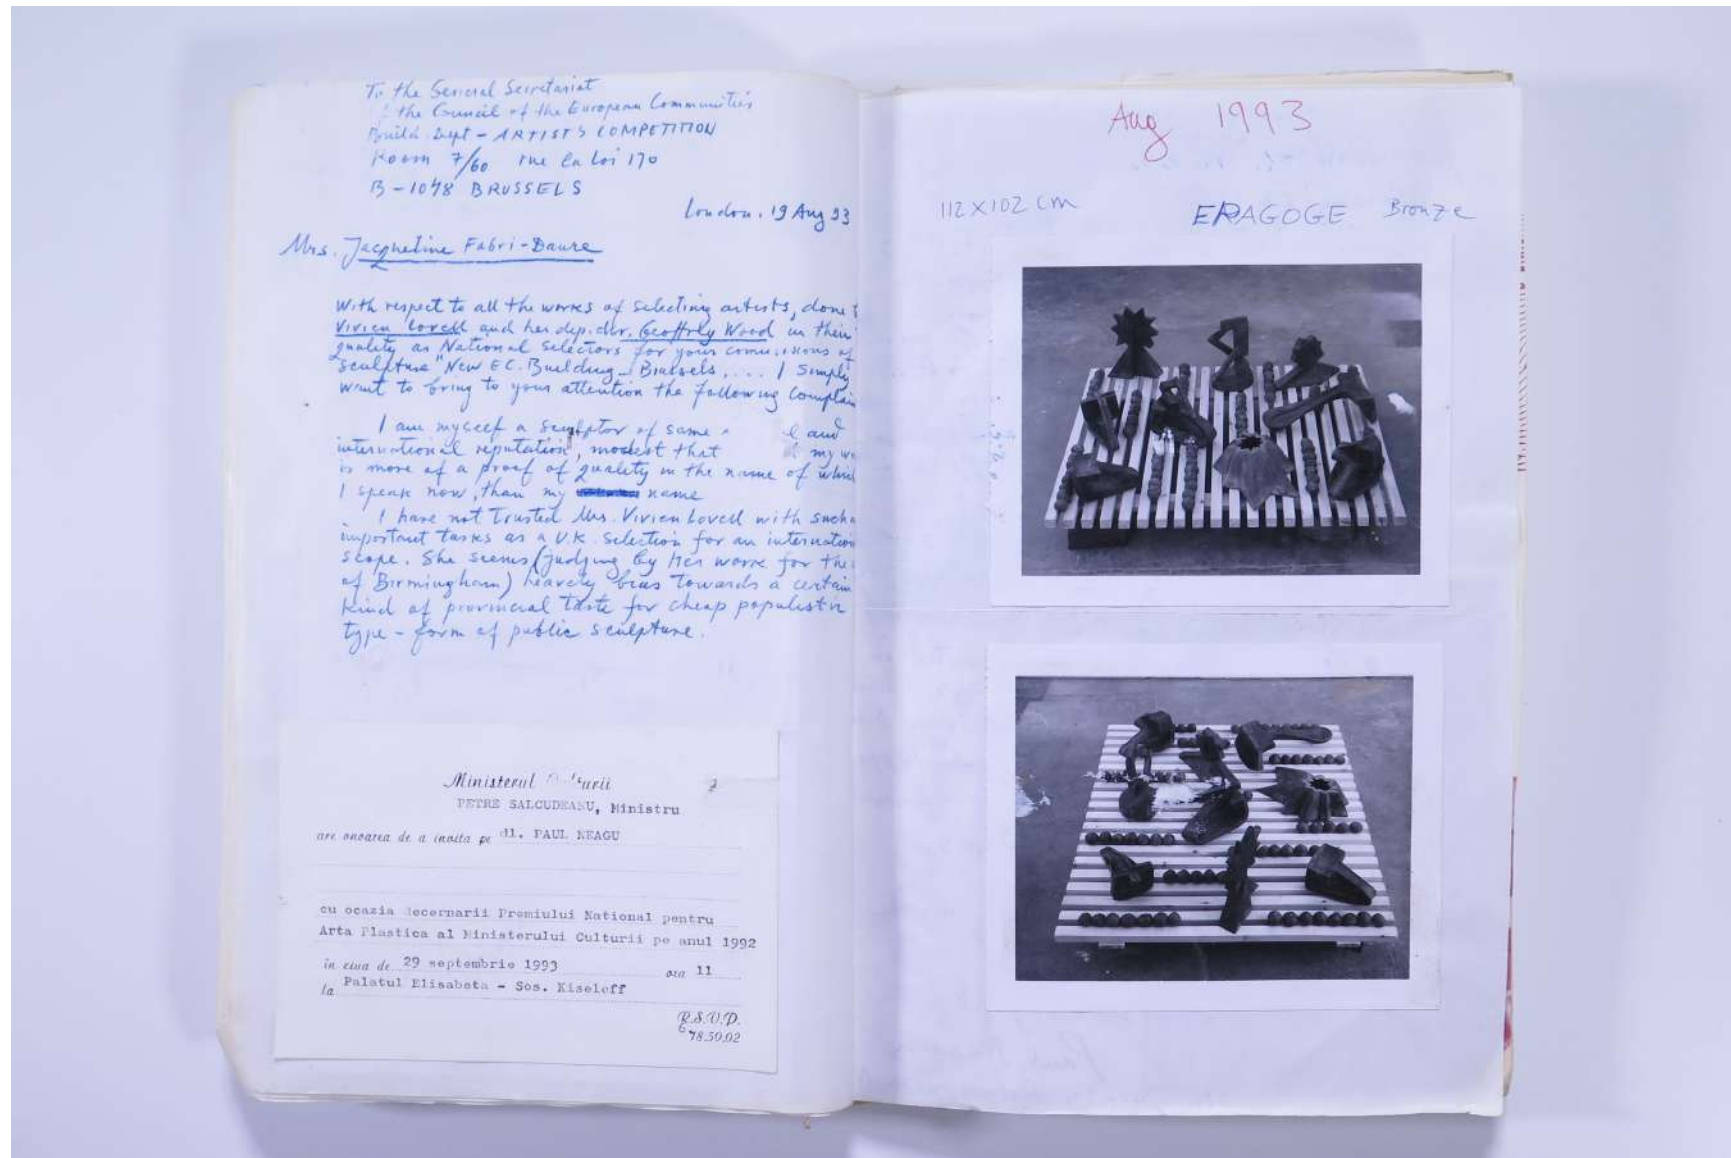 To the General Secretariat
the Council of the European Communities
Build. Dept - ARTISTS COMPETITION
Room 7/60 rue la Loi 170
B-1048 BRUSSELS
London. 19 Aug 93
Mrs. Jacqueline Fabri-Daure
With respect to all the works of selecting artists, done
Vivien Lovell and her dep. dir. Geoffrey Wood in their
quality as National Selectors for your commissions of
sculpture "New EC. Building - Brussels .... I simply
want to bring to your attention the following complain
I am myself a sculptor of some and
international reputation, modest that my
is more of a proof of quality in the name of which
I speak now, than my name
I have not trusted Mrs. Vivien Lovell with such
important tasks as a U.K. selection for an internation
scope. She seems (judging by her work for the
of Birmingham) heavely bias towards a certain
kind of provincial taste for cheap populist
type - form of public sculpture.
Ministerul
PETRE SALCUDEANU, Ministru
are onoarea de a invita pe dl. PAUL NEAGU
cu ocazia decernarii Premiului National pentru
Arta Plastica al Ministerului Culturii pe anul 1992
în ziua de 29 septembrie 1993 ora 11
la Palatul Elisabeta - Sos. Kiseleff
R.S.V.P.
6
78.50.02
Aug 1993
112 X 102 cm ERAGOGE Bronze